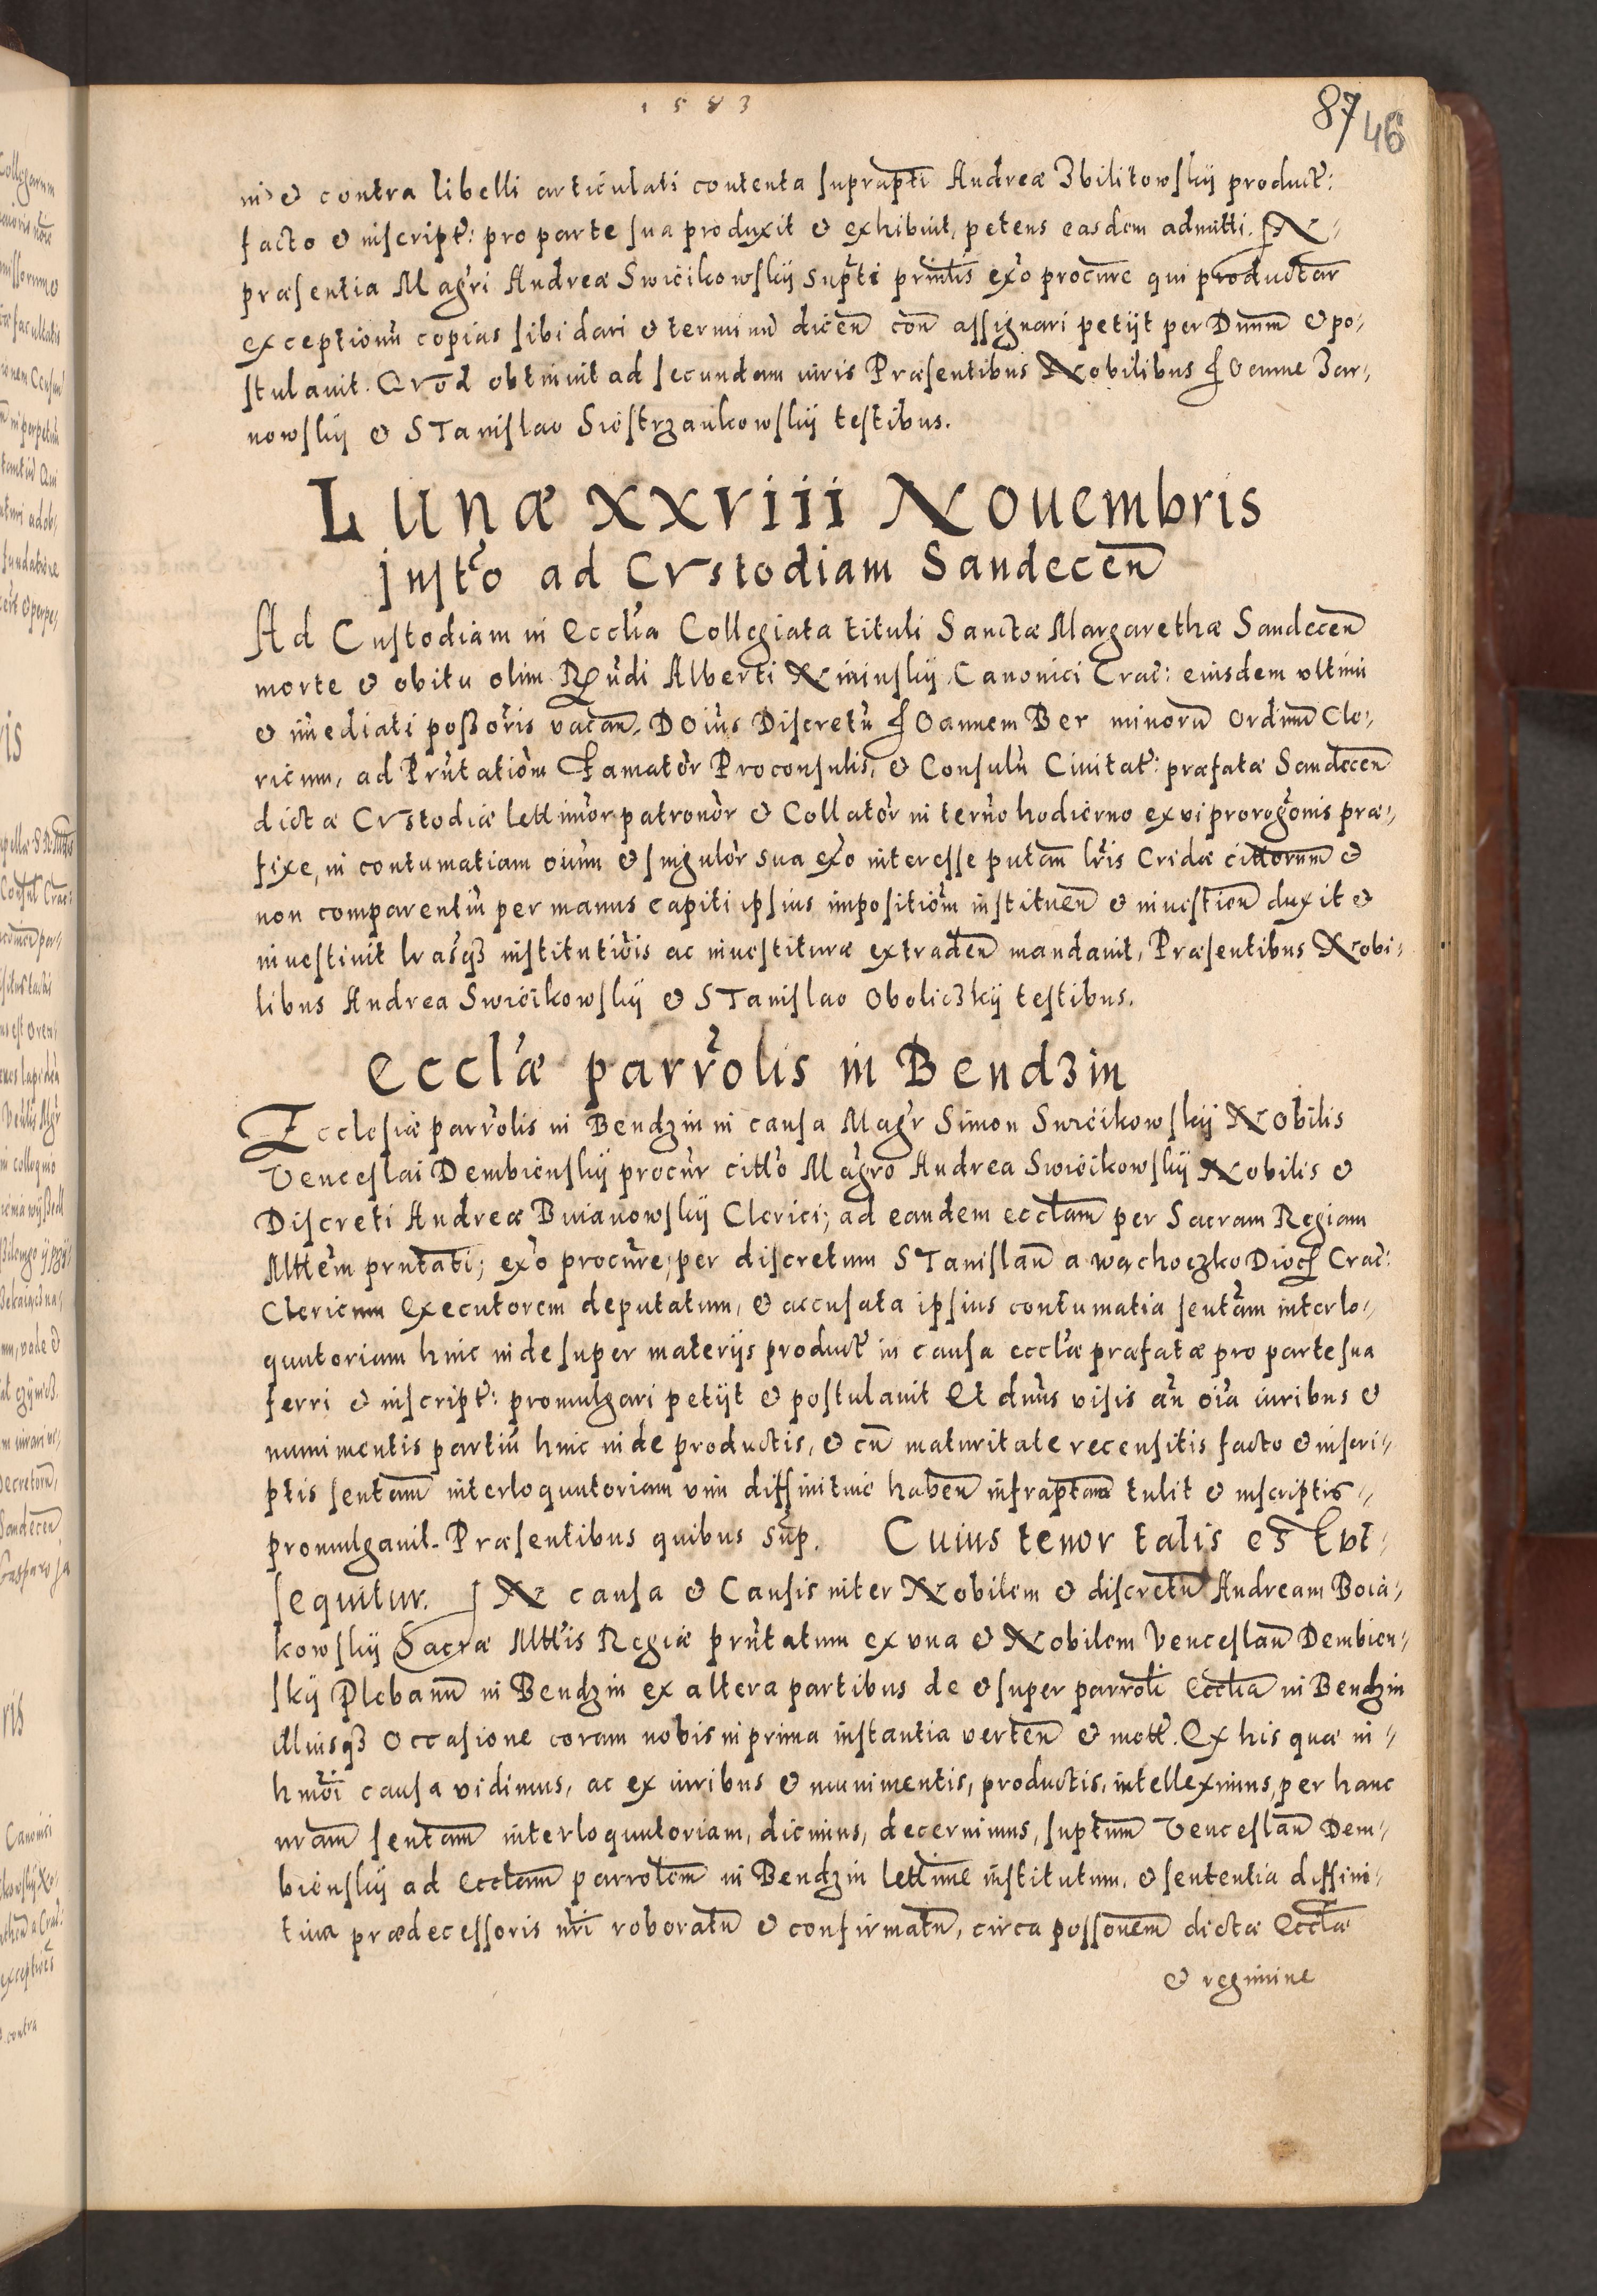 1583
87
46
ni & contra libelli articulati contenta suprapti Andreæ Zbilitowskÿ product:
facto & inscript: pro parte sua produxit & exhibuit, petens easdem admitti. IN
præsentia Magri Andreæ Swiėcikowskÿ supti prinlis exo procure qui productar
exceptionū copias sibi dari & terminū dicen con assignari petijt per Dnum & po-
stulauit. Qvod obtinuit ad secundam iuris Præsentibus Nobilibus Joanne Zar-
nowskÿ & STanislao Siostrzankowskÿ testibus.
Lunæ XXVIII Nouembris
Justo ad Cvstodiam Sandecen
Ad Custodiam in Ecclia Collegiata tituli Sanctæ Margarethæ Sandecen
morte & obitu olim Rndi Alberti Nininskÿ Canonici Crac: eiusdem vltimi
& imediati possoris vacan. Doius Discretū Joannem Ber minorū Ordinū Cle-
ricum, ad Prntationem Famator Proconsulis, & Consulū Ciuitat: præfatæ Sandecen
dictæ Cvstodiæ lettimor patronor & Collator in termo hodierno ex vi prorogonis præ-
fixe, in contumatiam oium & singulor sua exo interesse putan lris Cridæ cittorum &
non comparentiū per manus capiti ipsius impositiom instituen & inuestien duxit &
inuestiuit lrasqȝ institutiois ac inuestituræ extraden mandauit, Præsentibus Nobi-
libus Andrea Swiėcikowskÿ & STanislao Oboliczkÿ testibus.
Ecclæ parrolis in Bendzin
Ecclesiæ parrolis in Bendzin in causa Magr Simon Swiėcikowskÿ Nobilis
Venceslai Dembienskÿ procur citto Magro Andrea Swiėcikowskÿ Nobilis &
Discreti Andreæ Buianowskÿ Clerici; ad eandem ecclam per Sacram Regiam
Mttem prntati; exo procure; per discretum STanislaū a wąchoczko Dioc Crac:
Clericum Executorem deputatum, & accusata ipsius contumatia sentam interlo-
quutoriam hinc inde super materijs product in causa ecclæ præfatæ pro parte sua
ferri & inscript: promulgari petijt & postulauit Et dnus visis an oia iuribus &
munimentis partiū hinc inde productis, & cū maturitate recensitis facto & inscri-
ptis sentam interloquutoriam vim diffinitiue haben infraptam tulit & inscriptis
promulgauit. Præsentibus quibus sup. Cuius tenor talis est vt
sequitur. IN causa & Causis inter Nobilem & discretū Andream Boia-
kowskÿ Sacræ Mttis Regiæ prntatum ex vna & Nobilem Venceslaū Dembien-
skÿ Plebanū in Bendzin ex altera partibus de & super parroli Ecclia in Bendzin
illiusqȝ Occasione coram nobis in prima instantia verten & mott. Ex his quæ in
hmoi causa vidimus, ac ex iuribus & munimentis, productis, intelleximus, per hanc
nram sentam interloquutoriam, dicimus, decernimus, suptum Venceslaū Dem-
bienskÿ ad Ecclam parrolem in Bendzin lettime institutum, & sententia diffini-
tiua prædecessoris nri roboratū & confirmatū, circa possonem dictæ Ecclæ
& regimine